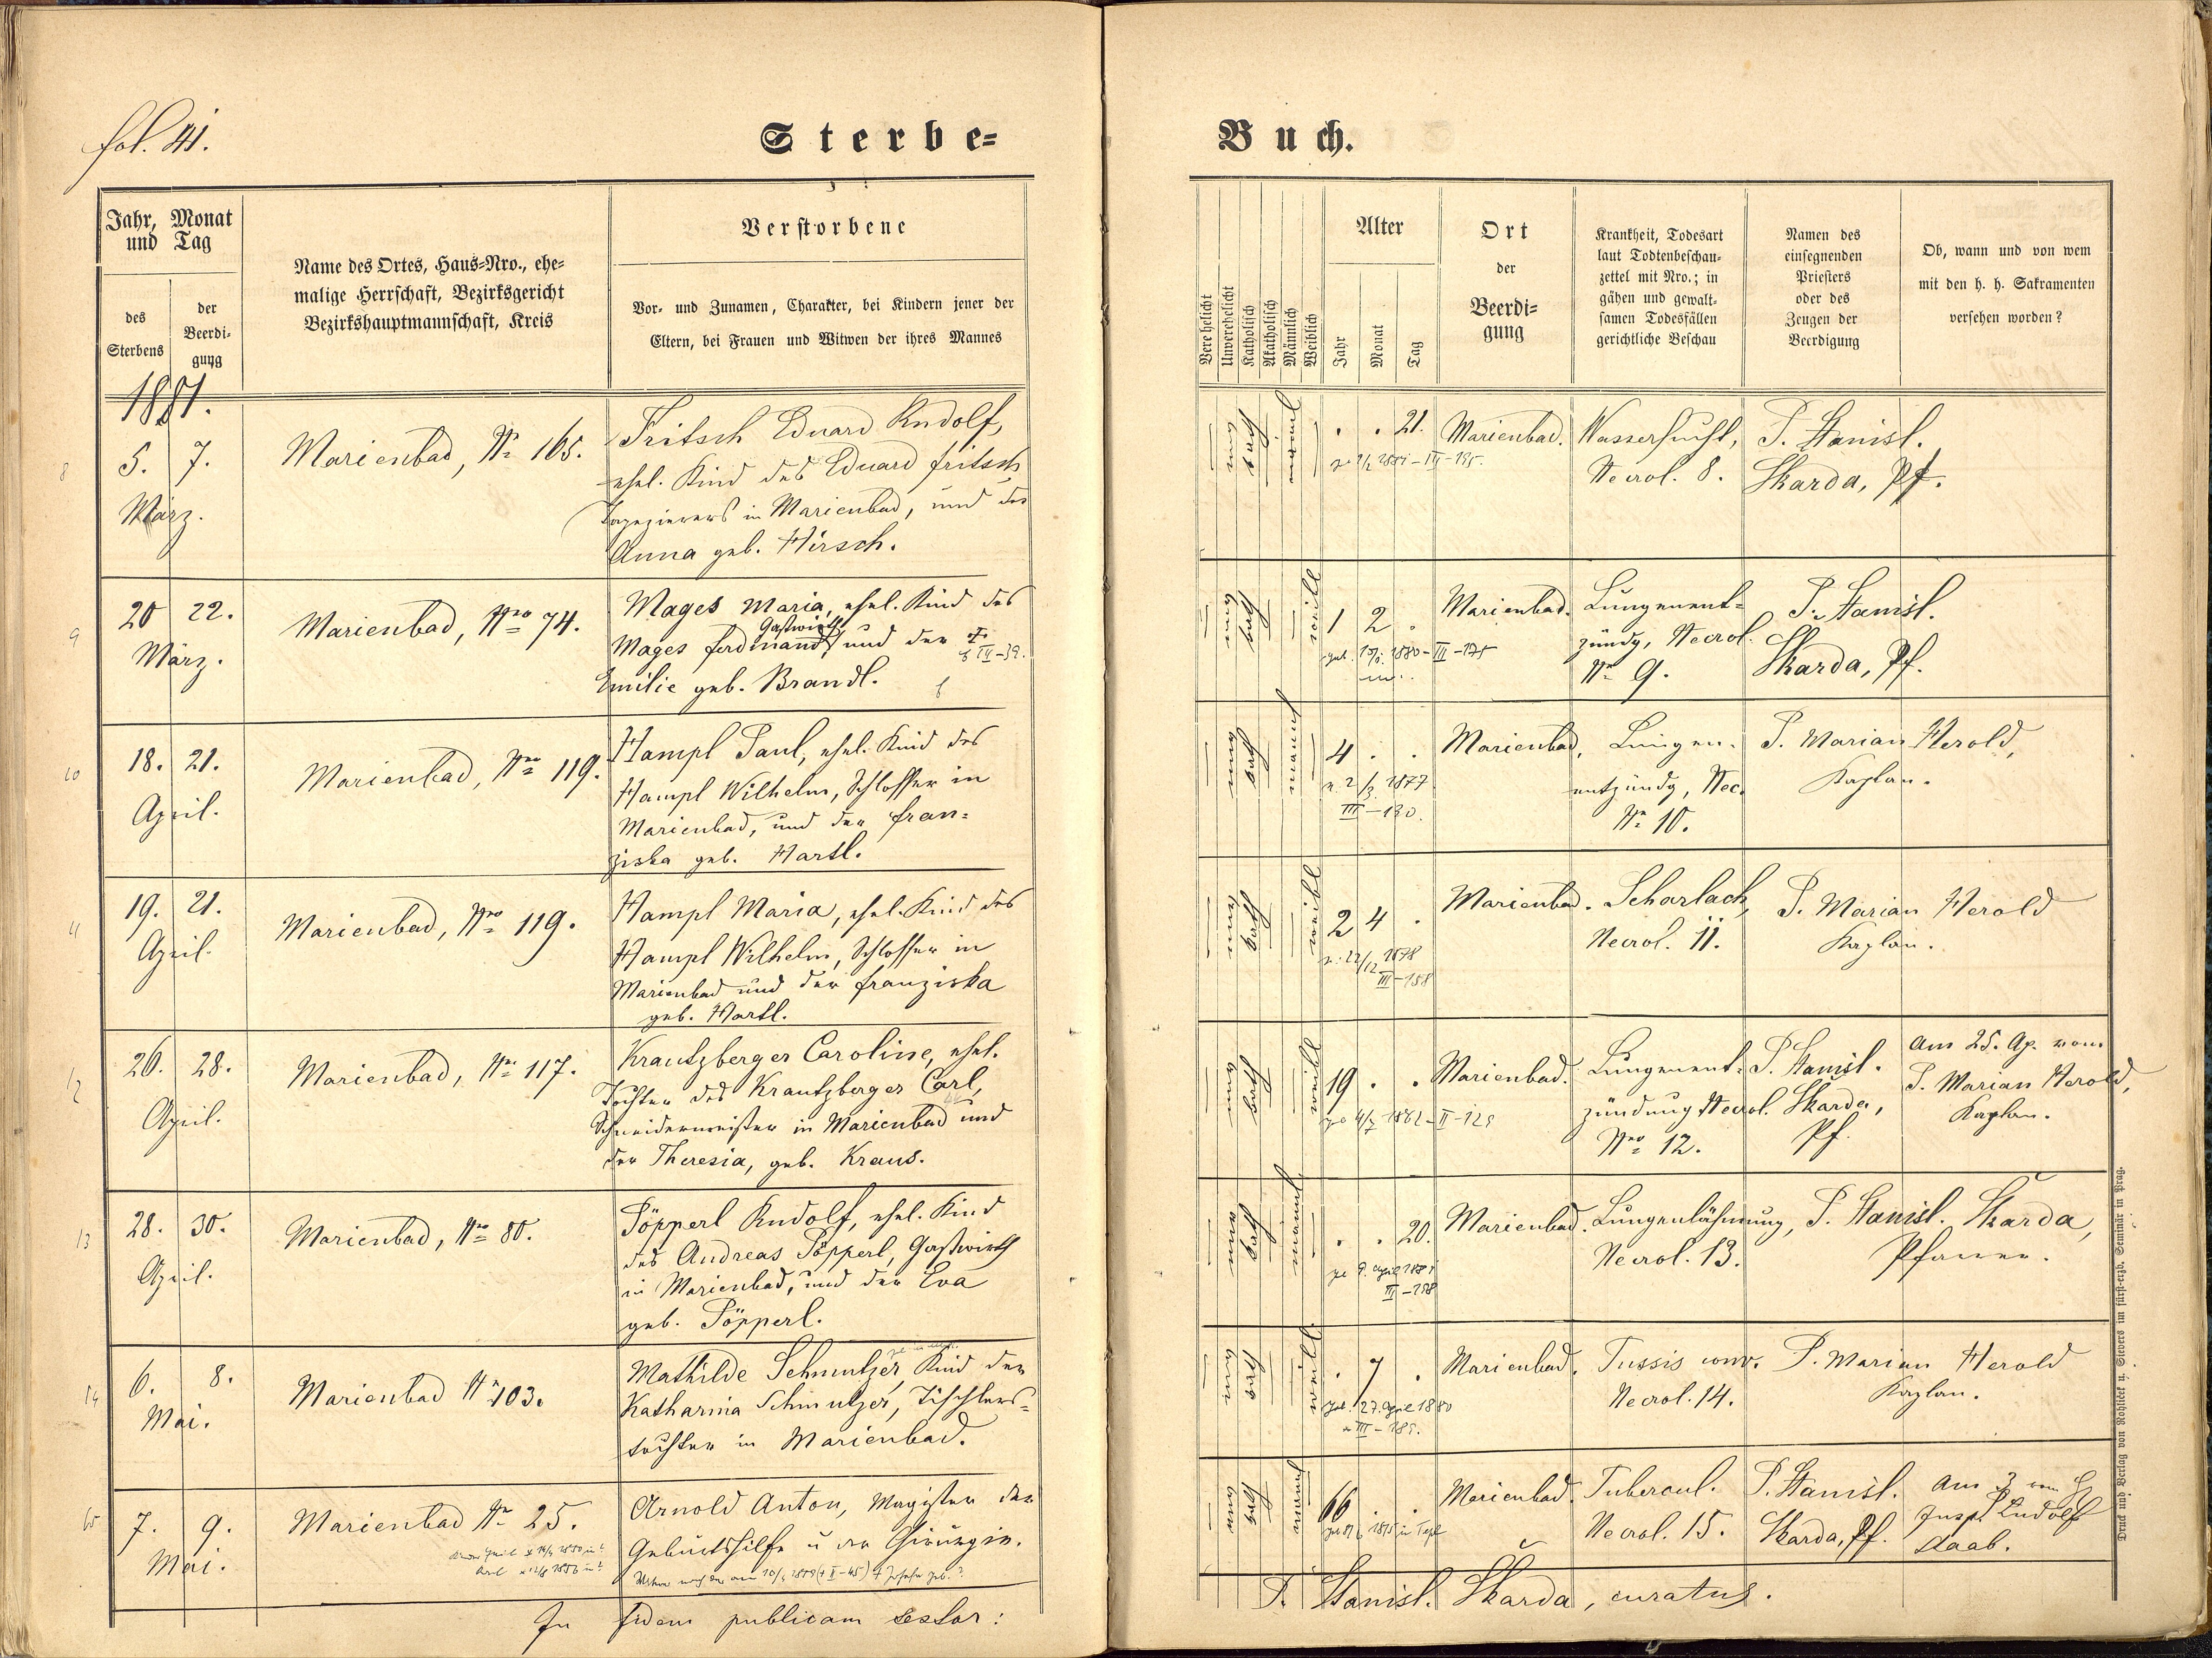 fol. 41.
Sterbe=
Jahr, Monat
und Tag
des
Sterbens
der
Beerdi-
gung
Name des Ortes, Haus=Nro., ehe=
malige Herrschaft, Bezirksgericht
Bezirkshauptmannschaft, Kreis
Verstorbene
Vor- und Zunamen, Charakter, bei Kindern jener der
Eltern, bei Frauen und Witwen der ihres Mannes
1881.
8
5. 7.
März.
Marienbad, No 165.
Fritsch Eduard Rudolf,
ehel. Kind des Eduard Fritsch
Tapezierers in Marienbad, und der
Anna geb. Hirsch.
9
20 22.
März.
Marienbad, Nro 74.
Mages Maria, ehel. Kind des
Gastwirth
Mages Ferdinand, und der
Emilie geb. Brandl.
10
18. 21.
April.
Marienbad, Nro 119.
Hampl Paul, ehel. Kind des
Hampl Wilhelm, Schlosser in
Marienbad, und der Fran=
ziska geb. Hartl.
11
19. 21.
April.
Marienbad, Nro 119.
Hampl Maria, ehel. Kind des
Hampl Wilhelm, Schlosser in
Marienbad und der Franziska
geb. Hartl.
12
26. 28.
April.
Marienbad, Nro 117.
Krautzberger Caroline, ehel.
Tochter des Krautzberger Carl,
Schneidermeister in Marienbad und
der Theresia, geb. Kraus.
13
28. 30.
April.
Marienbad, Nro 80.
Pöpperl Rudolf, ehel. Kind
des Andreas Pöpperl, Gastwirth
in Marienbad, und der Eva
geb. Pöpperl.
14
6. 8.
Mai.
Marienbad No 103.
Mathilde Schmutzer, Kind der
Katharina Schmutzer, Tischlers=
tochter in Marienbad.
15
7. 9.
Mai.
Marienbad No 25.
Arnold Anton, Magister der
Geburtshilfe u der Chirurgie.
In fidem publicam testor:
Buch.
Verehelicht
Unverehelicht
Katholisch
Akatholisch
Männlich
Weiblich
Alter
Jahr
Monat
Tag
Ort
der
Beerdi=
gung
Krankheit, Todesart
laut Todtenbeschau-
zettel mit Nro.; in
gähen und gewalt-
samen Todesfällen
gerichtliche Beschau
Namen des
einsegnenden
Priesters
oder des
Zeugen der
Beerdigung
Ob, wann und von wem
mit den h. h. Sakramenten
versehen worden?
. . 21.
Marienbad.
Wassersucht,
Necrol. 8.
P. Stanisl.
Skarda, Pf.
1 2 .
Marienbad.
Lungenent=
zündg, Necrol.
No 9.
P. Stanisl.
Skarda, Pf.
4 . .
1877
III-130.
Marienbad,
Lungen-
entzündg, Nec.
No 10.
P. Marian Herold,
Kaplan.
2 4 .
22/12 1878
III-158
Marienbad.
Scharlach,
Necrol. 11.
P. Marian Herold
Kaplan.
19 . .
1862-II-129
Marienbad.
Lungenent=
zündung Necrol.
Nro 12.
P. Stanisl.
Skarda,
Pf.
Am 25. Ap. vom
P. Marian Herold,
Kaplan.
. . 20.
9. April 1881
III-198
Marienbad.
Lungenlähmung,
Necrol. 13.
P. Stanisl. Skarda,
Pfarrer.
. 7 .
geb. 27. April 1880
III-185.
Marienbad.
Tussis conv.
Necrol. 14.
P. Marian Herold
Kaplan.
66 . .
Marienbad.
Tubercul.
Necrol. 15.
P. Stanisl.
Skarda, Pf.
Am 3 vom H
Insp. Rudolf
Staab.
P. Stanisl. Skarda, curatus.
Druck und Verlag von Rohliček u. Sievers im fürst-erzb. Seminär in Prag.